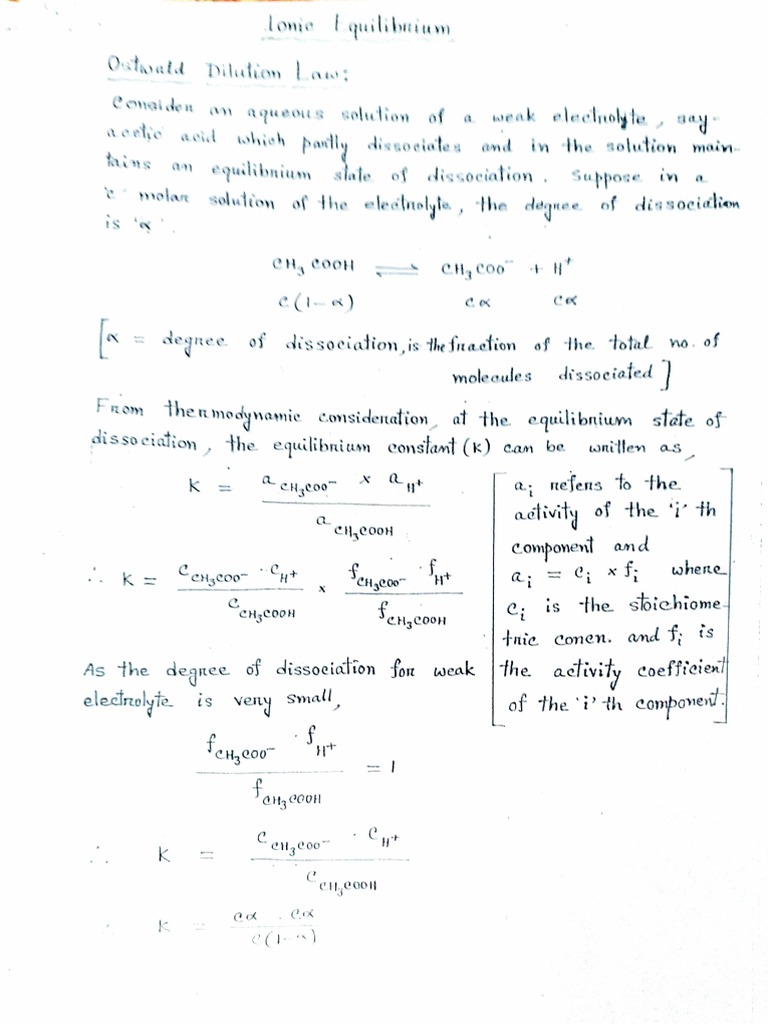 Ionic Equilibrium
Ostwald Dilution Law:
Consider an aqueous solution of a weak electrolyte, say-
acetic acid which partly dissociates and in the solution main-
tains an equilibrium state of dissociation. Suppose in a
'c' molar solution of the electrolyte, the degree of dissociation
is 'α'.
CH₃COOH ⇌ CH₃COO⁻ + H⁺
c(1-α) cα cα
[α = degree of dissociation, is the fraction of the total no. of
molecules dissociated]
From thermodynamic consideration, at the equilibrium state of
dissociation, the equilibrium constant (K) can be written as,
K = (a_CH₃COO⁻ × a_H⁺) / a_CH₃COOH
∴ K = (C_CH₃COO⁻ · C_H⁺) / C_CH₃COOH × (f_CH₃COO⁻ · f_H⁺) / f_CH₃COOH
[aᵢ refers to the
activity of the 'i' th
component and
aᵢ = cᵢ × fᵢ where
cᵢ is the stoichiome-
tric concn. and fᵢ is
the activity coefficient
of the 'i' th component.]
As the degree of dissociation for weak
electrolyte is very small,
(f_CH₃COO⁻ · f_H⁺) / f_CH₃COOH = 1
∴ K = (C_CH₃COO⁻ · C_H⁺) / C_CH₃COOH
∴ K = (cα · cα) / c(1-α)